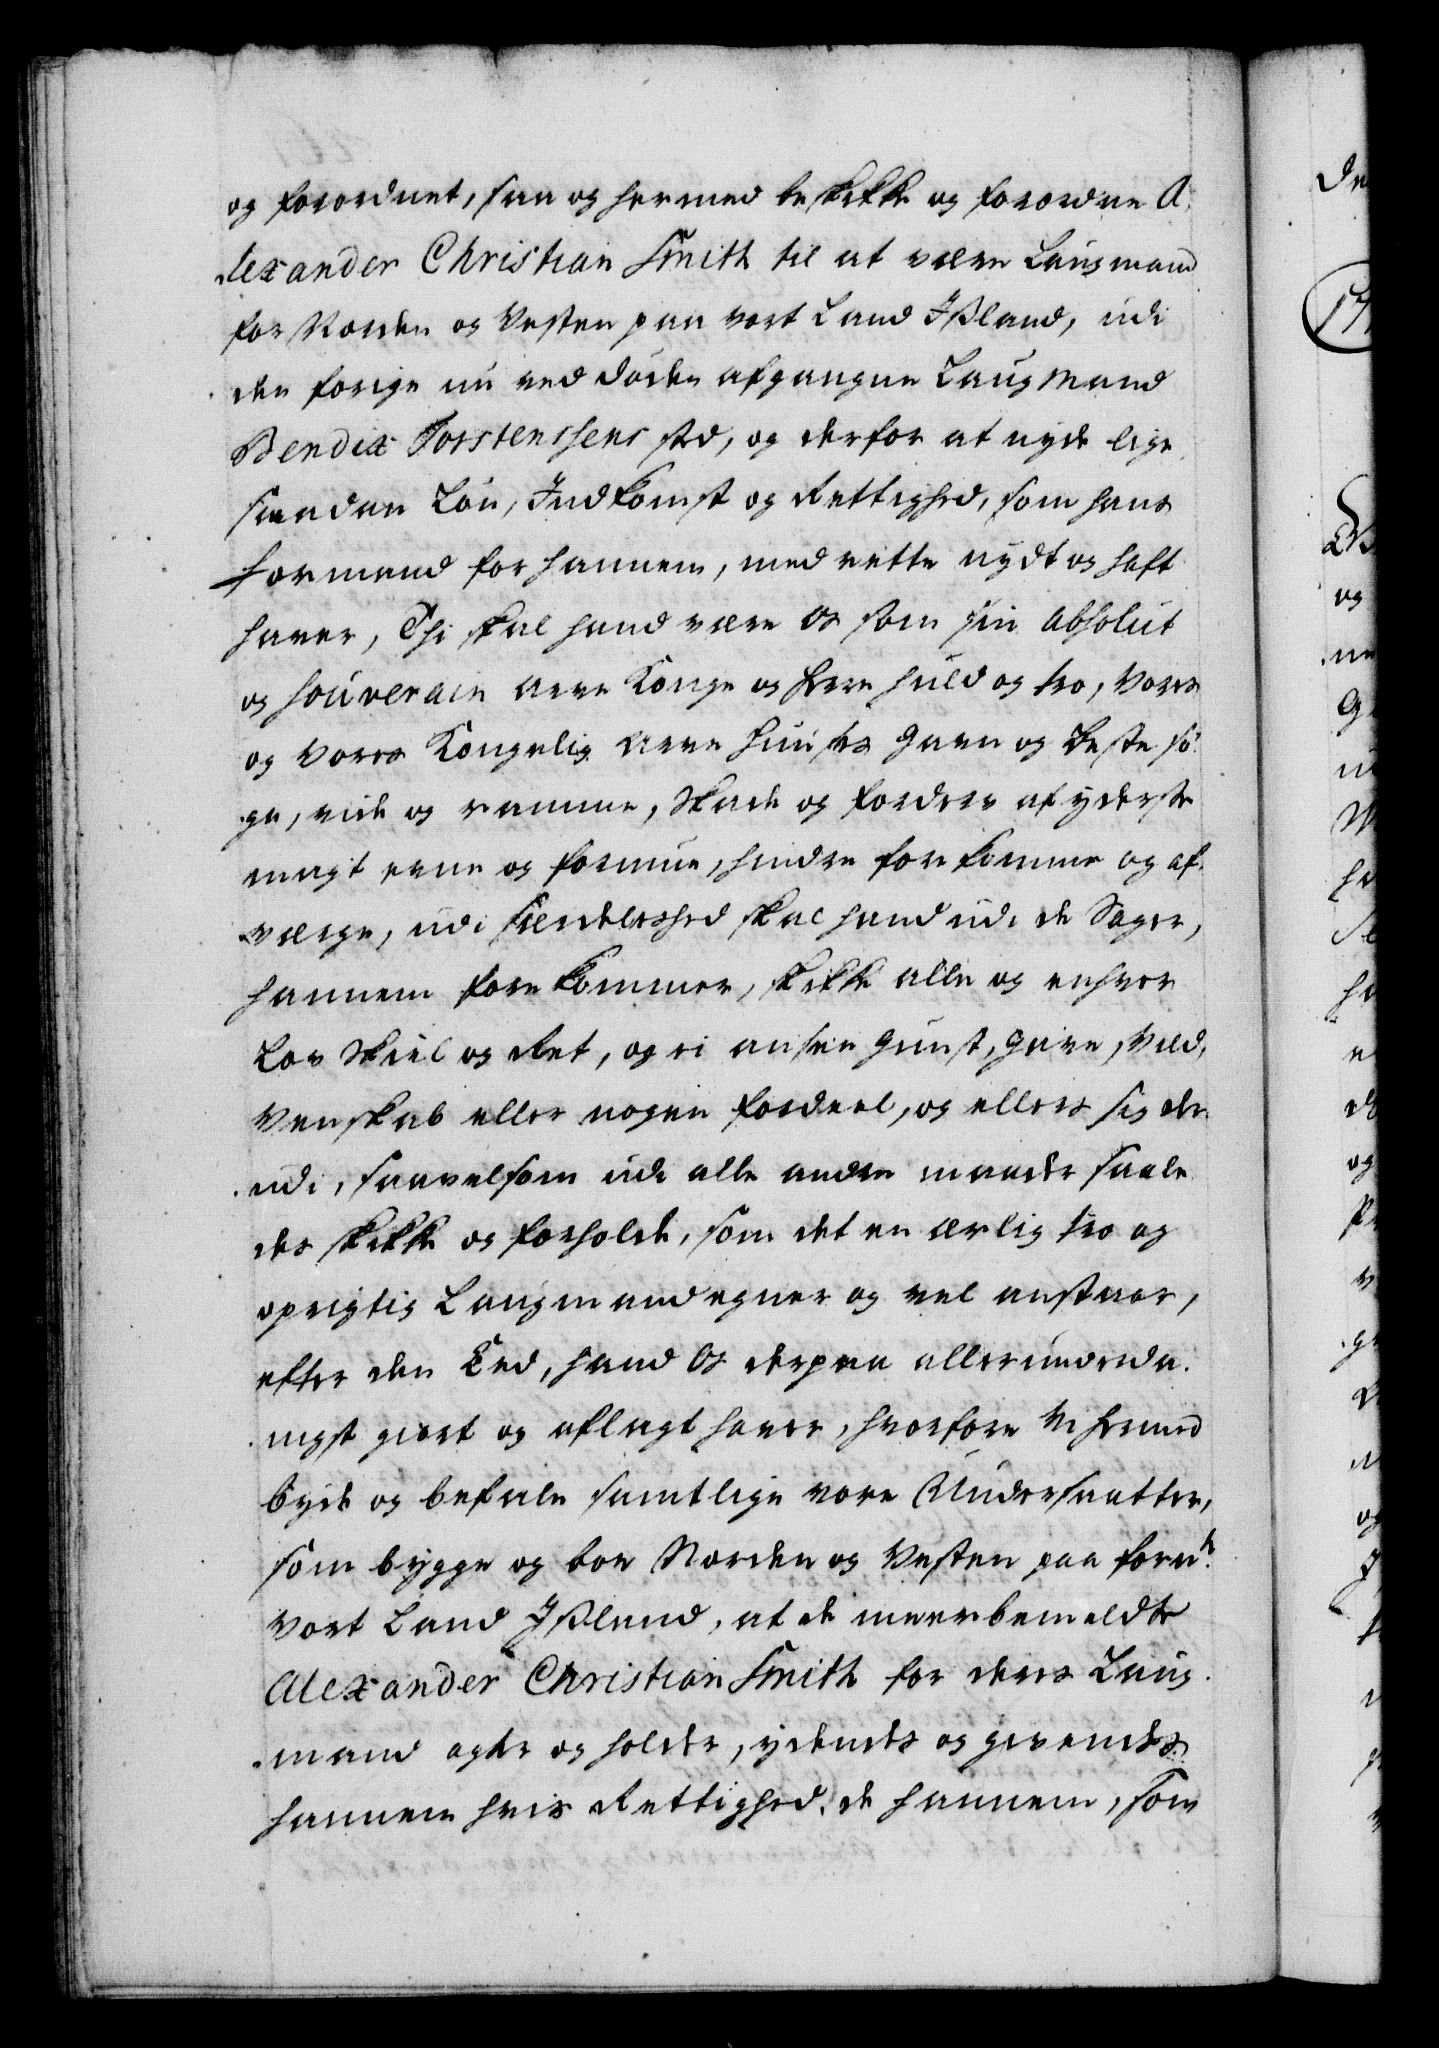 og forordnet, saa og hermed beskikke og forordne A-
lexander Christian Smith til at være Laugmand
for Norden og Vesten paa vort Land Ißland, udi
den forige nu ved døden afgangne Laugmand
Bendix Torstensens sted, og derfor at nyde lige
saadan Løn, Indkomst og Rettighed, som hans
formand for hannem, med rette nydt og haft
haver, Thi skal hand være Os som sin absolut
og souverain Arve Konge og Herre huld og tro, Vores
og Vores Kongelig Arve Huuses Gavn og Beste sø-
ge, vide og ramme, Skade og fordærv af yderste
magt evne og formue, hindre forekomme og af-
værge, udi Særdeleshed skal hand udi de Sager,
hannem forekommer, skikke alle og enhver
Lov Skiel og Ret, og ei ansee Gunst, Gave, Vild,
Venskab eller nogen fordeel, og ellers sig der-
udi, saavelsom udi alle andre maader saale-
des skikke og forholde, som det en ærlig tro og
oprigtig Laugmand egner og vel anstaar,
efter den Eed, hand Os derpaa allerunderda-
nigst giort og aflagt haver, hvorfore Vi hermed
byde og befale samtlige vore Undersaatter,
som bygge og boe Norden og Vesten paa fornte
vort Land Ißland, at de meerbemeldte
Alexander Christian Smith for deres Laug-
mand agter og holder, ydendes og givendes
hannem hvis Rettighed, de hannem, som